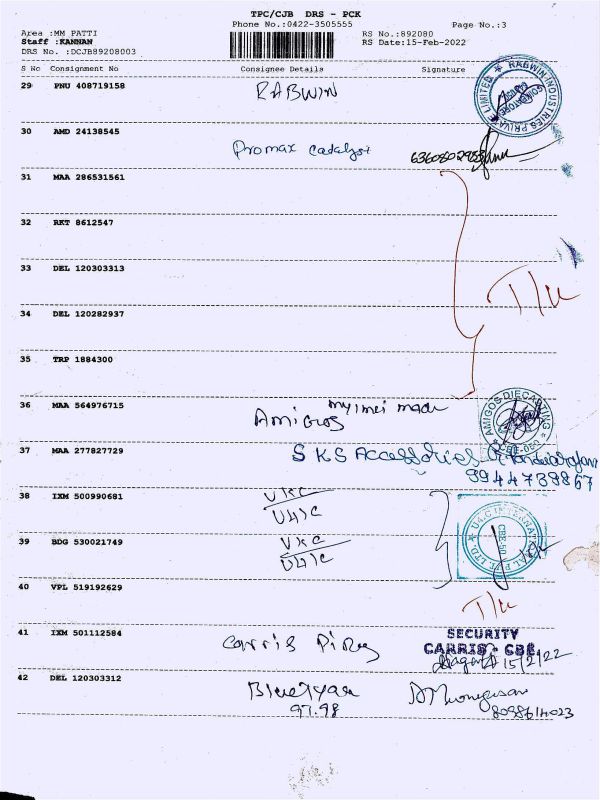 TPC/CJB DRS - PCK
Phone No.:0422-3505555
Page No.:3
Area :MM PATTI
RS No.:892080
Staff :KANNAN
RS Date:15-Feb-2022
DRS No. :DCJB89208003
S No Consignment No Consignee Details Signature
29 PNU 408719158 RABWIN
RABWIN INDUSTRIES PRIVATE LIMITED
30 AMD 24138545 Promax Catalyst
31 MAA 286531561
32 RKT 8612547
33 DEL 120303313
T/U
34 DEL 120282937
35 TRP 1884300
36 MAA 564976715 Amigos
AMIGOS DIECASTING
37 MAA 277827729 SKS Accessories
9944739867
38 IXM 500990681
U4IC
39 BDG 530021749
U4IC
40 VPL 519192629
T/U
41 IXM 501112584 Carris
SECURITY
CARRIS - CBE.
15/2/22
42 DEL 120303312
97.98